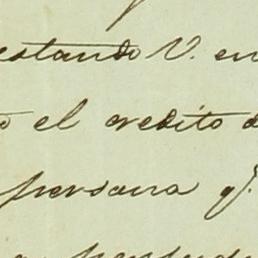 estando V. en
o el credito d
persona q.